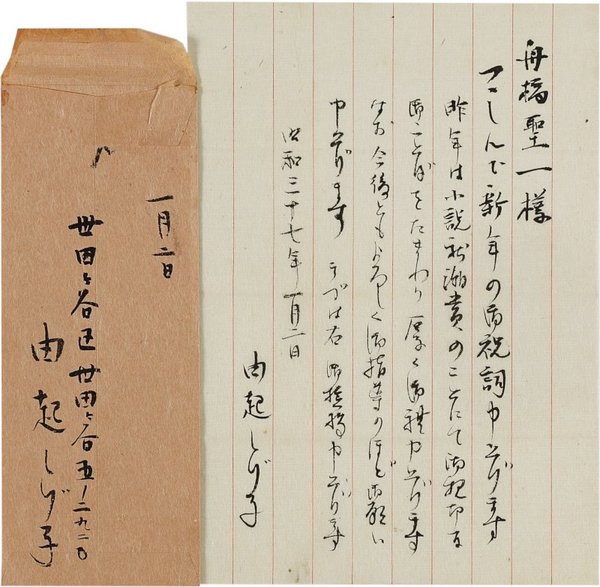 舟橋聖一様
つつしんで新年の御祝詞申上げます
昨年は小説新潮賞のことにて御親切な
御ことばをたまわり厚く御礼申上げます
なお今後ともよろしく御指導のほど御願い
申上げます まづは右御挨拶申上げます
昭和三十七年一月二日
由起しげ子
一月二日
世田ヶ谷区世田ヶ谷五ノ二九二〇
由起しげ子